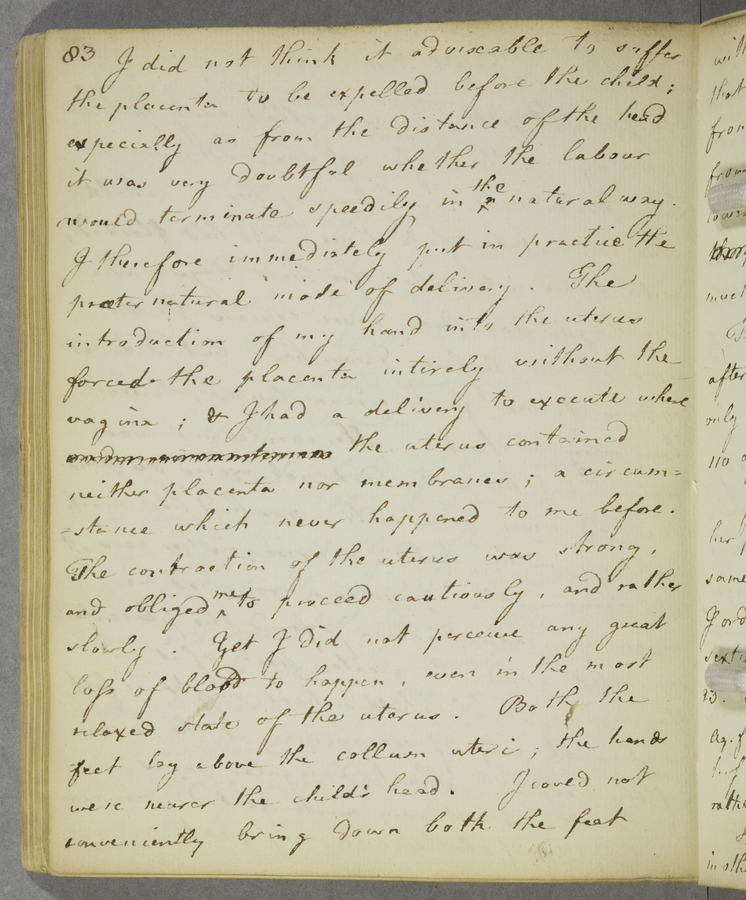 83 I did not think it adviseable to suffer
the placenta to be expelled before the child;
especially as from the distance of the head
it was very doubtful whether the labour
would terminate speedily in the natural way.
I therefore immediately put in practice the
præternatural mode of delivery. The
introduction of my hand into the uterus
forced the placenta intirely without the
vagina; & I had a delivery to execute where
the uterus contained
neither placenta nor membranes; a circum=
=stance which never happened to me before.
The contraction of the uterus was strong,
and obliged me to proceed cautiously, and rather
slowly. Yet I did not perceive any great
loss of blood to happen, even in the most
relaxed state of the uterus. Both the
feet lay above the collum uteri; the hands
were nearer the child's head. I could not
conveniently bring down both the feet